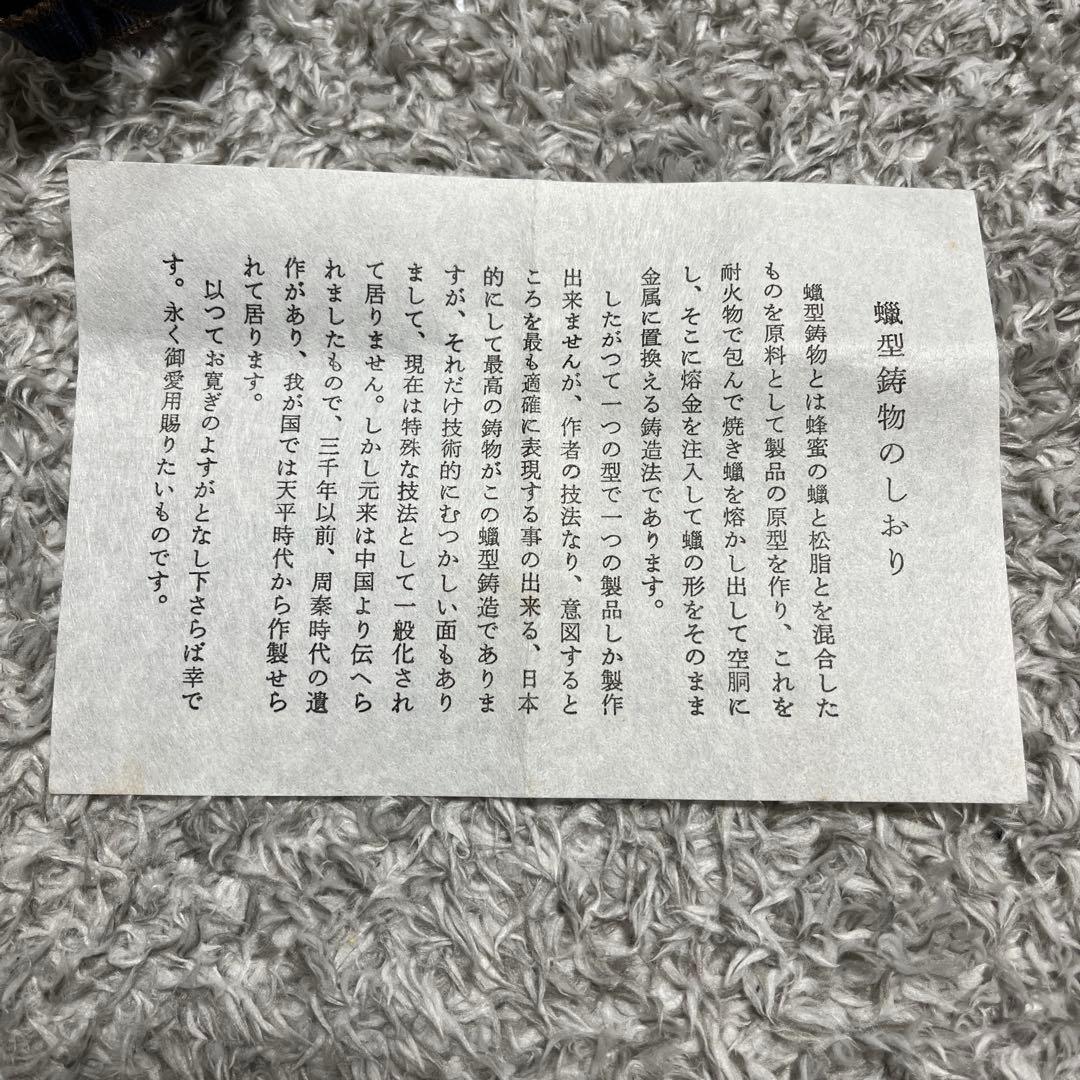 蠟型鋳物のしおり
蠟型鋳物とは蜂蜜の蠟と松脂とを混合した
ものを原料として製品の原型を作り、これを
耐火物で包んで焼き蠟を熔かし出して空胴に
し、そこに熔金を注入して蠟の形をそのまま
金属に置換える鋳造法であります。
したがつて一つの型で一つの製品しか製作
出来ませんが、作者の技法なり、意図すると
ころを最も適確に表現する事の出来る、日本
的にして最高の鋳物がこの蠟型鋳造でありま
すが、それだけ技術的にむつかしい面もあり
まして、現在は特殊な技法として一般化され
て居りません。しかし元来は中国より伝へら
れましたもので、三千年以前、周秦時代の遺
作があり、我が国では天平時代から作製せら
れて居ります。
以つてお寛ぎのよすがとなし下さらば幸で
す。永く御愛用賜りたいものです。